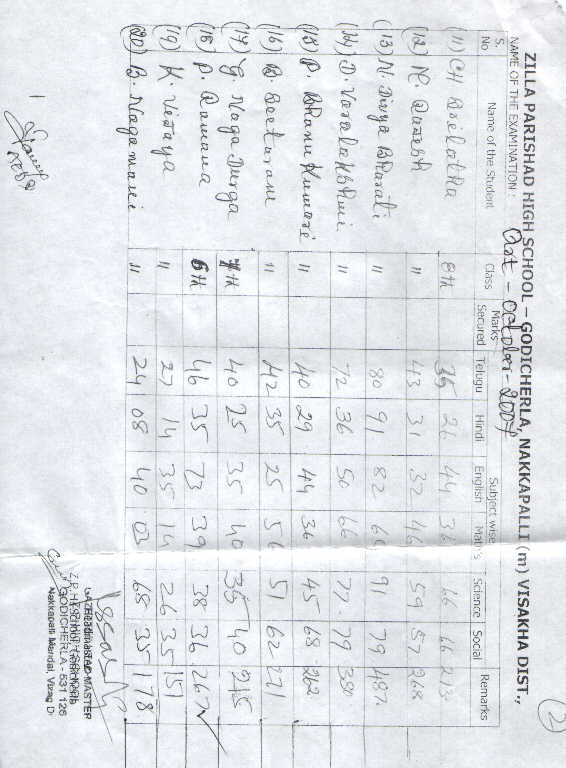 (2)
ZILLA PARISHAD HIGH SCHOOL – GODICHERLA, NAKKAPALLI (m) VISAKHA DIST.,
NAME OF THE EXAMINATION : October - 2007
S. No Name of the Student Class Marks Secured Subject wise
Telugu Hindi English Math's Science Social Remarks
(11) CH Srilatha 8th 35 26 44 36 66 66 273
(12) K. Rajesh " 43 31 32 46 59 57 268
(13) N. Divya Bharati " 80 91 82 64 91 79 487
(14) D. Varalakshmi " 72 36 50 66 77 79 380
(15) P. Bhanu Kumari " 40 29 44 36 45 68 262
(16) B. Seetaram " 42 35 25 56 51 62 271
(17) G. Naga Durga 7th 40 25 35 40 35 40 215
(18) P. Ramana 6th 46 35 73 39 38 36 267
(19) K. Vijaya " 27 14 35 14 26 35 151
(20) B. Nagamani " 24 08 40 03 68 35 178
GODICHERLA - 531 126
Nakkapalli Mandal, Vizag D